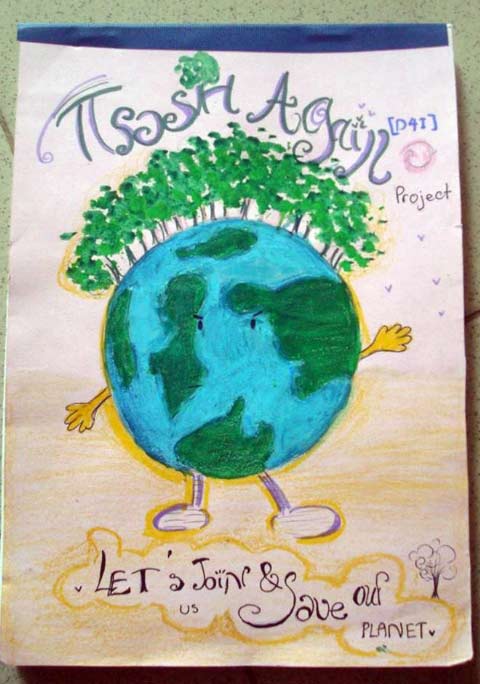 Trash Again
[D4I]
Project
LET's Join & Save our
us
PLANET